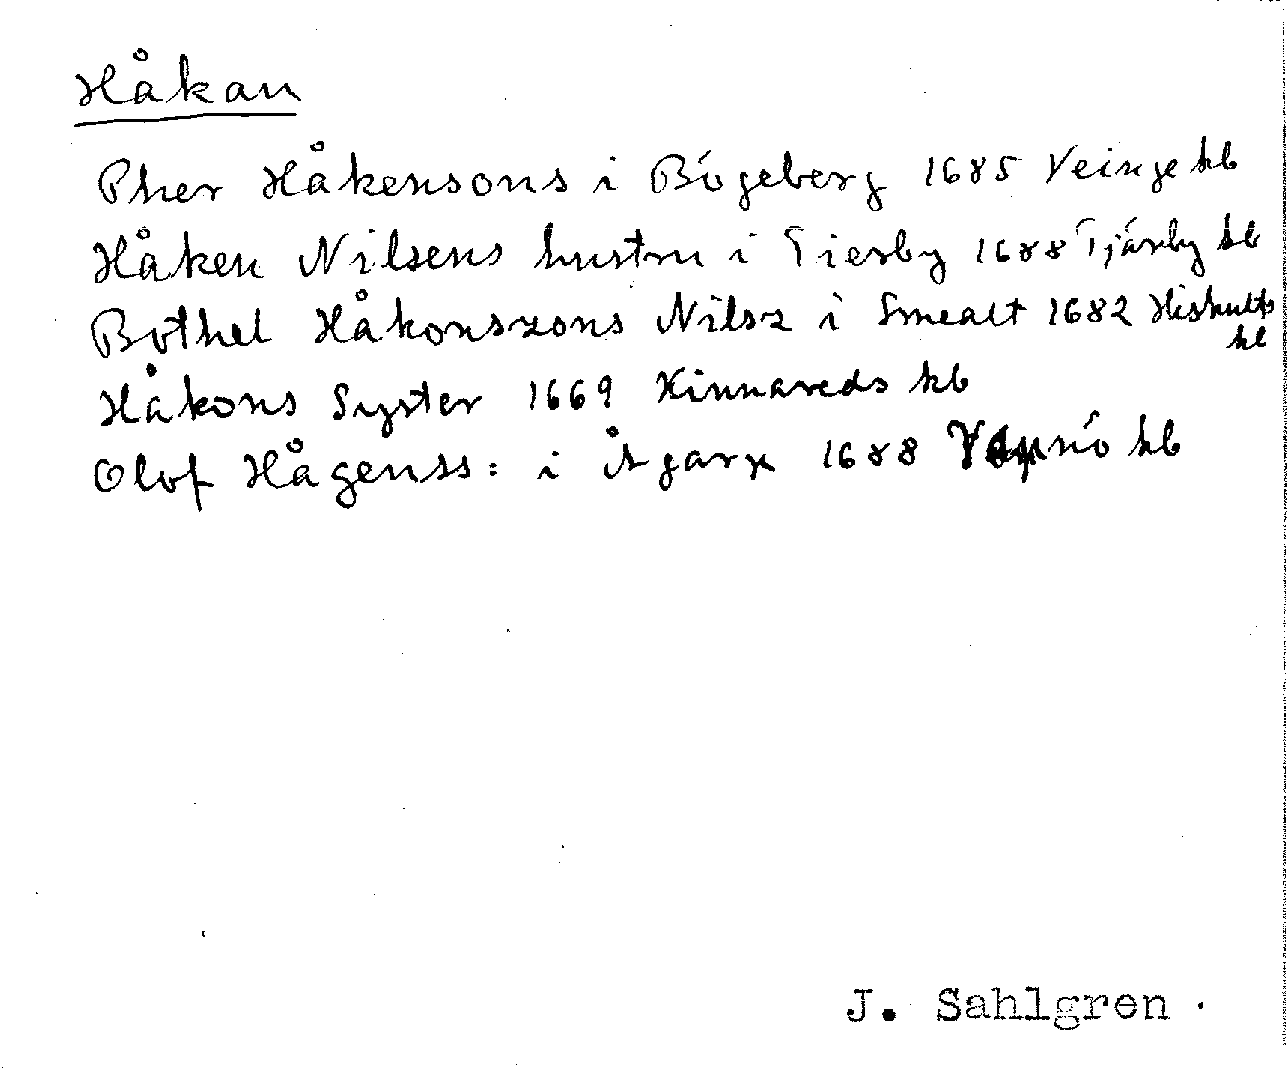 Håkan
Pher Håkensons i Bögeberg 1685 Veinge kb
Håken Nilsens hustru i Tierby 1688 Tjärby kb
Bothel Håkonszons Nilsz i Smealt 1682 Hishults
kb
Håkons Syster 1669 Kinnareds kb
Olof Hågenss: i Ågarp 1688 Vapnö kb
J. Sahlgren.